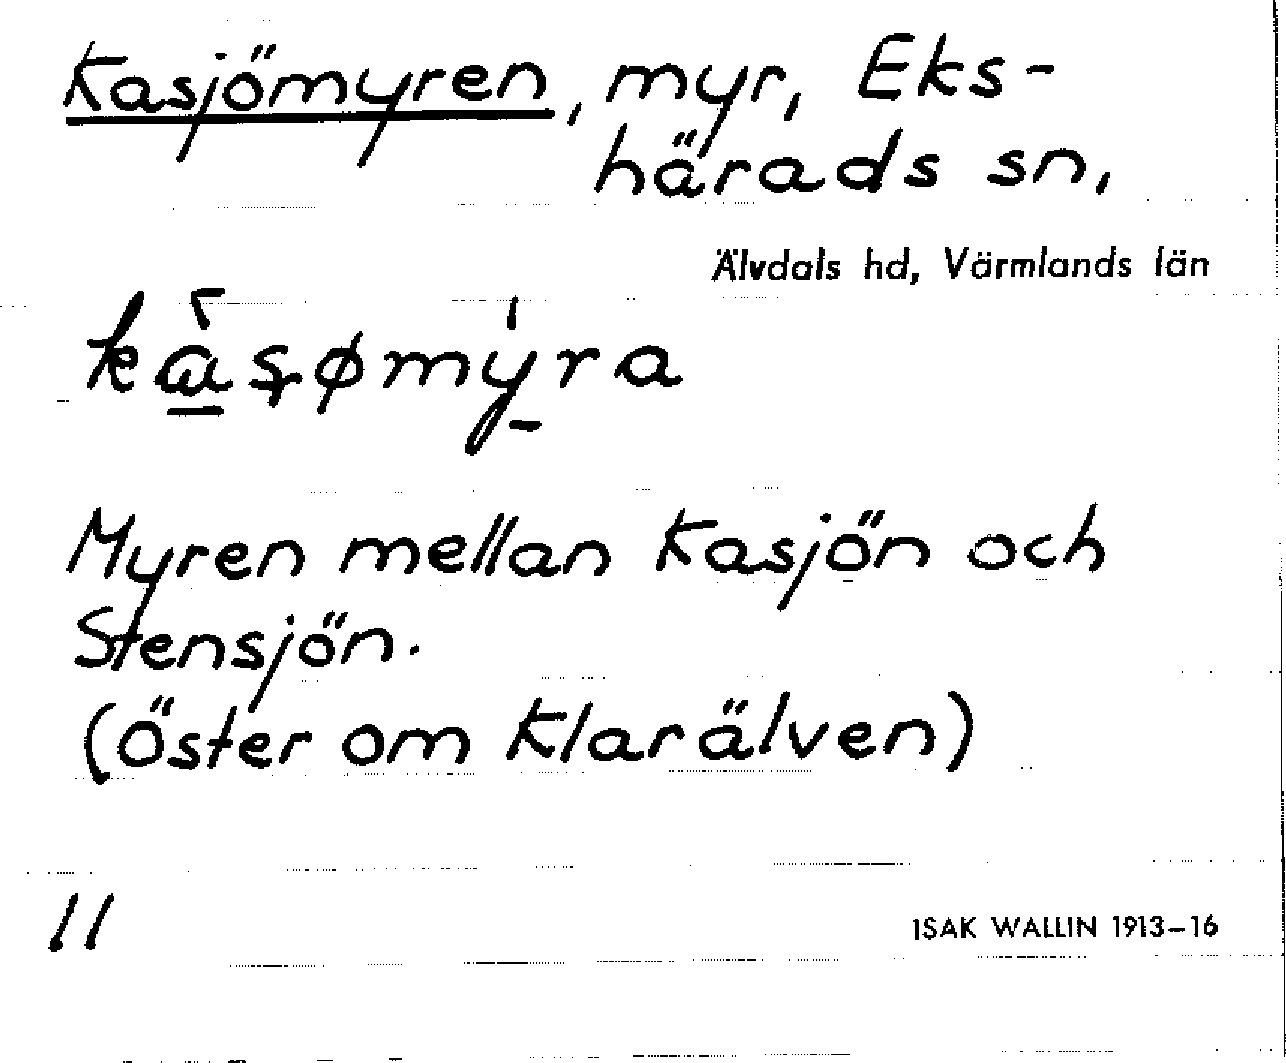 Kasjömyren, myr, Eks-
härads sn,
Älvdals hd, Värmlands län
kàsømýra
Myren mellan Kasjön och
Stensjön.
(Öster om Klarälven)
11
ISAK WALLIN 1913–16